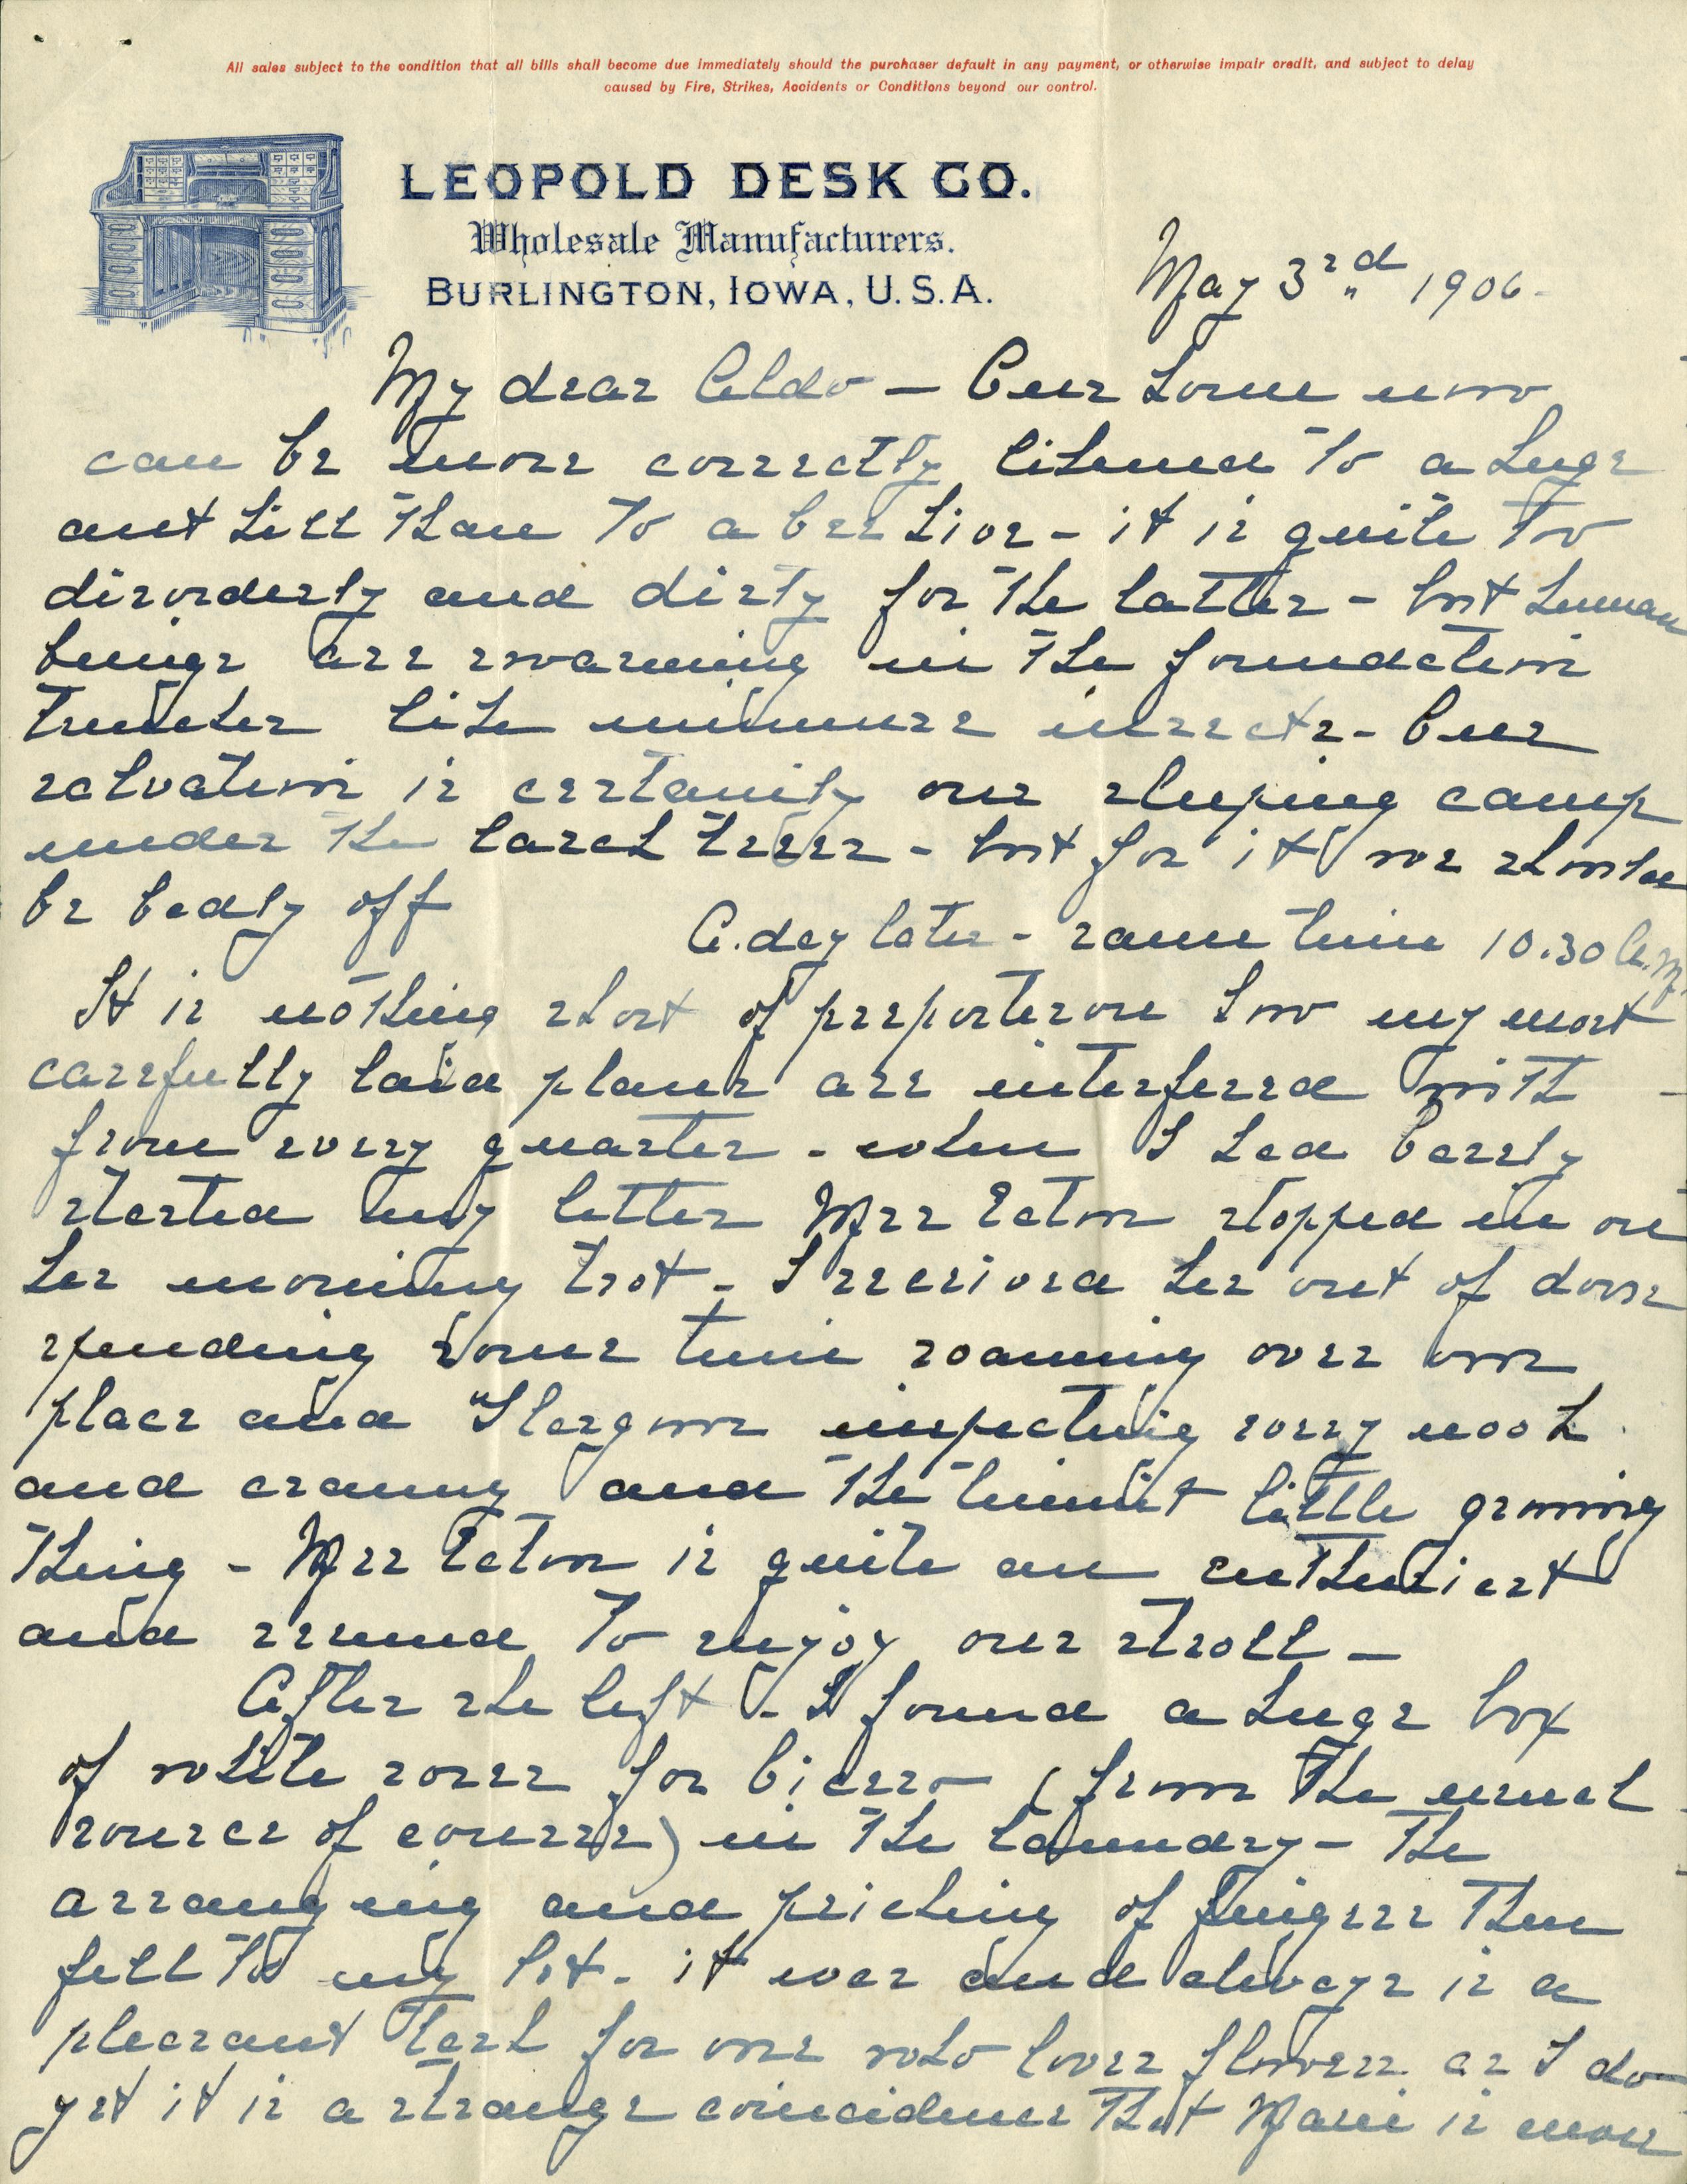 All sales subject to the condition that all bills shall become due immediately should the purchaser default in any payment, or otherwise impair credit, and subject to delay
caused by Fire, Strikes, Accidents or Conditions beyond our control.
LEOPOLD DESK CO.
Wholesale Manufacturers.
BURLINGTON, IOWA, U.S.A.
May 3rd 1906.
My dear Aldo — Our home now
can be more correctly likened to a huge
ant hill than to a bee hive - it is quite too
disorderly and dirty for the latter - but human
beings are swarming in the foundation
trenches like immense insects - Our
salvation is certainly our sleeping camp
under the larch trees - but for it we should
be badly off
A day later - same time 10.30 A.M.
It is nothing short of preposterous how my most
carefully laid plans are interfered with -
from every quarter - when I had barely
started my letter Mrs Eaton stopped in on
her morning trot - I received her out of doors
spending some time roaming over our
place and inspecting every nook
and cranny and the tiniest little growing
thing - Mrs Eaton is quite an enthusiast
and seemed to enjoy our stroll —
After she left - I found a huge box
of white roses for (from the usual
source of course) in the laundry - The
arranging and pricking of fingers then
fell to my lot - it was and always is a
pleasant task for one who loves flowers as I do
yet it is a strange coincidence that Marie is never